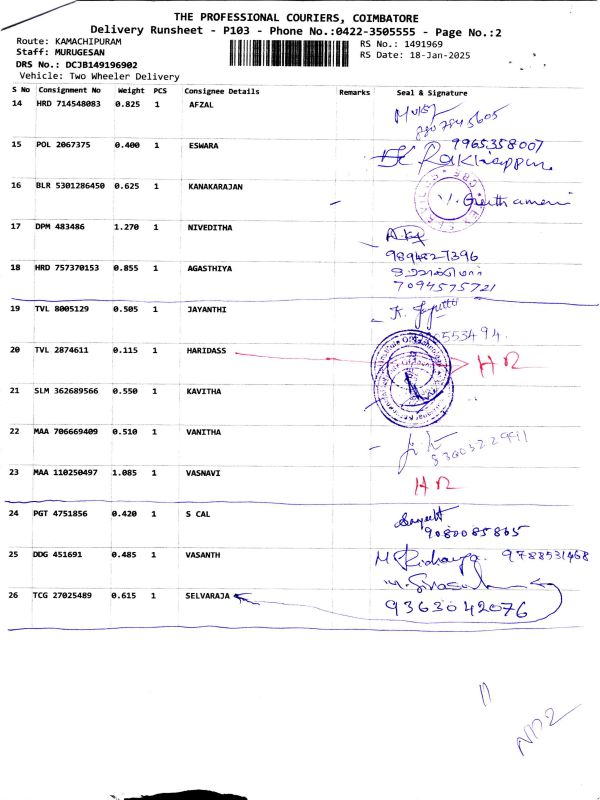 THE PROFESSIONAL COURIERS, COIMBATORE
Delivery Runsheet - P103 - Phone No.:0422-3505555 - Page No.:2
Route: KAMACHIPURAM
RS No.: 1491969
Staff: MURUGESAN
RS Date: 18-Jan-2025
DRS No.: DCJB149196902
Vehicle: Two Wheeler Delivery
S No Consignment No Weight PCS Consignee Details Remarks Seal & Signature
14 HRD 714548083 0.825 1 AFZAL
15 POL 2067375 0.400 1 ESWARA 9965358007
16 BLR 5301286450 0.625 1 KANAKARAJAN
17 DPM 483486 1.270 1 NIVEDITHA
9894827396
18 HRD 757370153 0.855 1 AGASTHIYA
7094575721
19 TVL 8005129 0.505 1 JAYANTHI
20 TVL 2874611 0.115 1 HARIDASS HR
21 SLM 362689566 0.550 1 KAVITHA
22 MAA 706669409 0.510 1 VANITHA
23 MAA 110250497 1.085 1 VASNAVI HR
24 PGT 4751856 0.420 1 S CAL
9080085865
25 DDG 451691 0.485 1 VASANTH 9788531468
26 TCG 27025489 0.615 1 SELVARAJA
9363042076